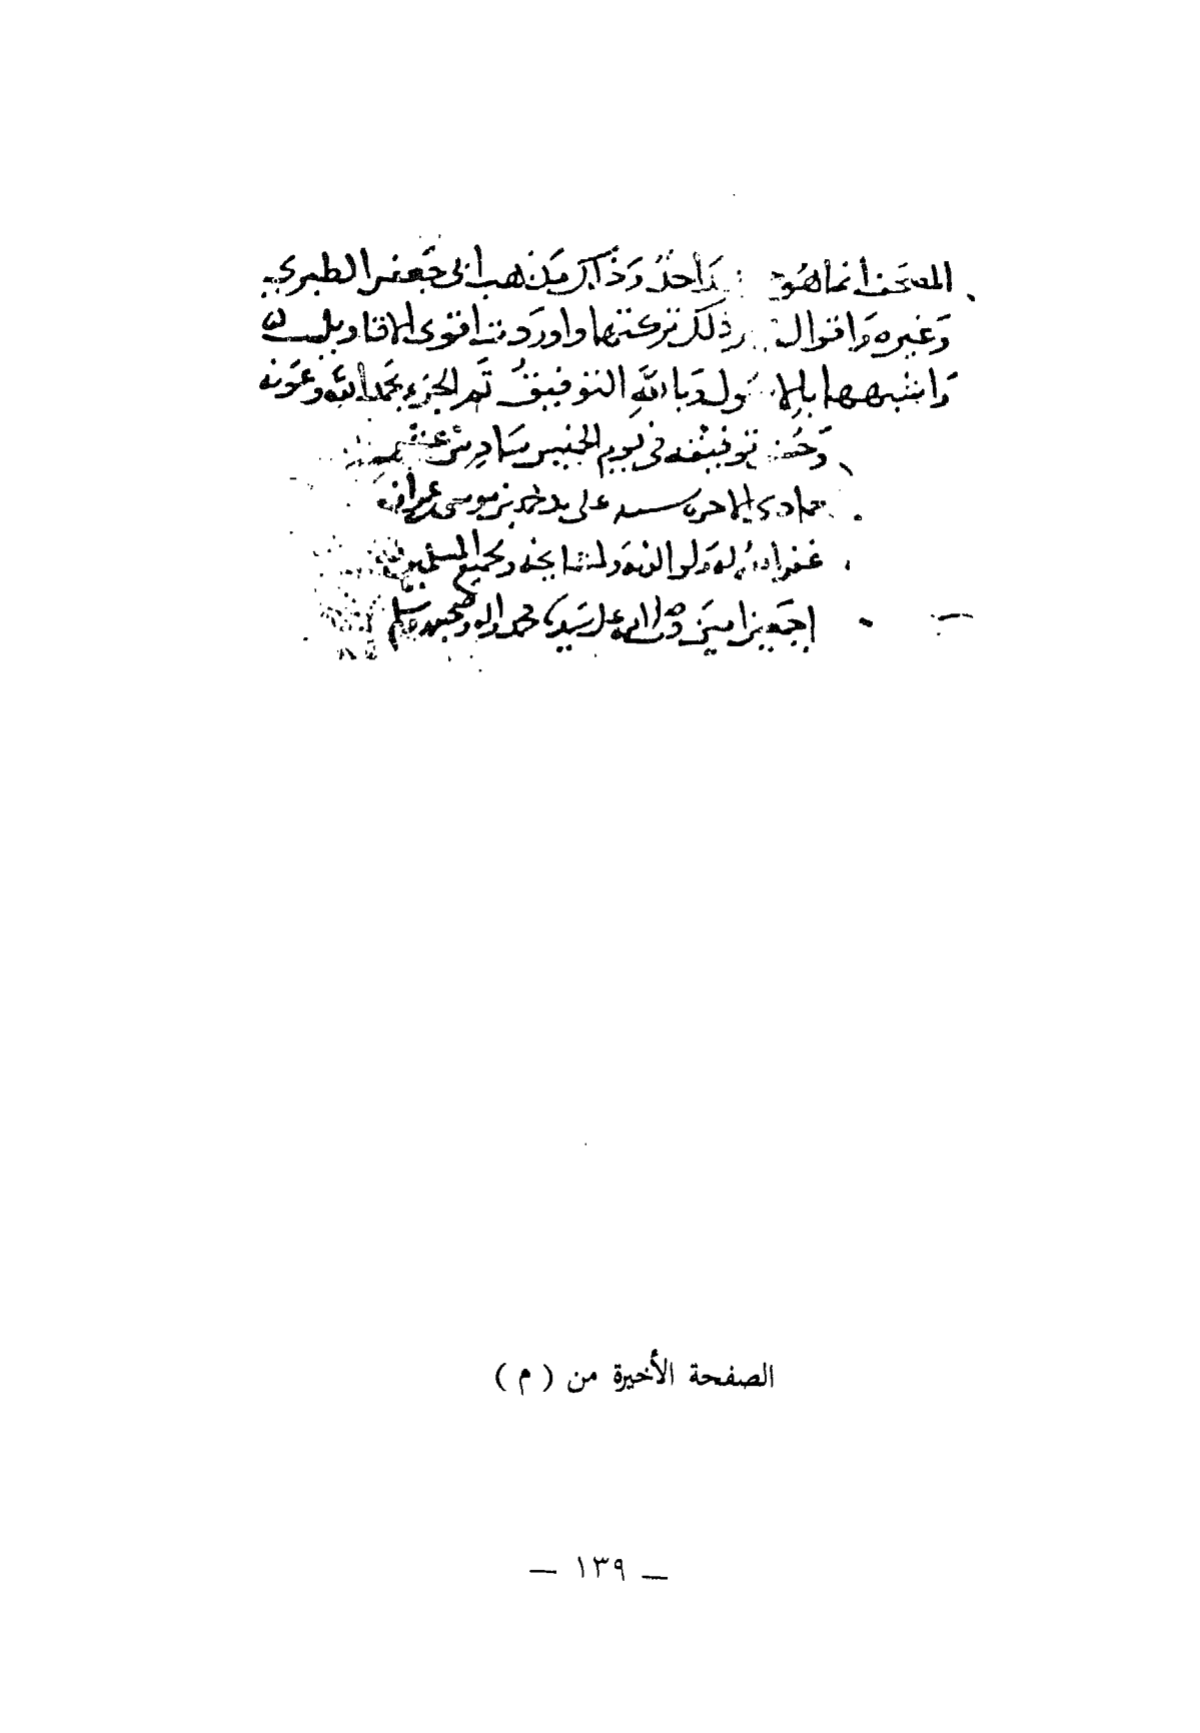 المصحف انما هو واحد وذاكر مذهب ابى جعفر الطبري
وغيره واقوال ذلك تركتها واوردت اقوى الاقاويل
واشبهها بالا وبالله التوفيق تم الجزء بحمد الله وعونه
وحسن توفيقه فى يوم الخميس سادس عشر
جمادى الاخر سنه على يد محمد بن موسى
غفر الله له ولوالديه ولمشايخه ولجميع المسلمين
اجمعين امين وصلى الله على سيدنا محمد واله وصحبه وسلم
الصفحة الأخيرة من ( م )
— ١٣٩ —